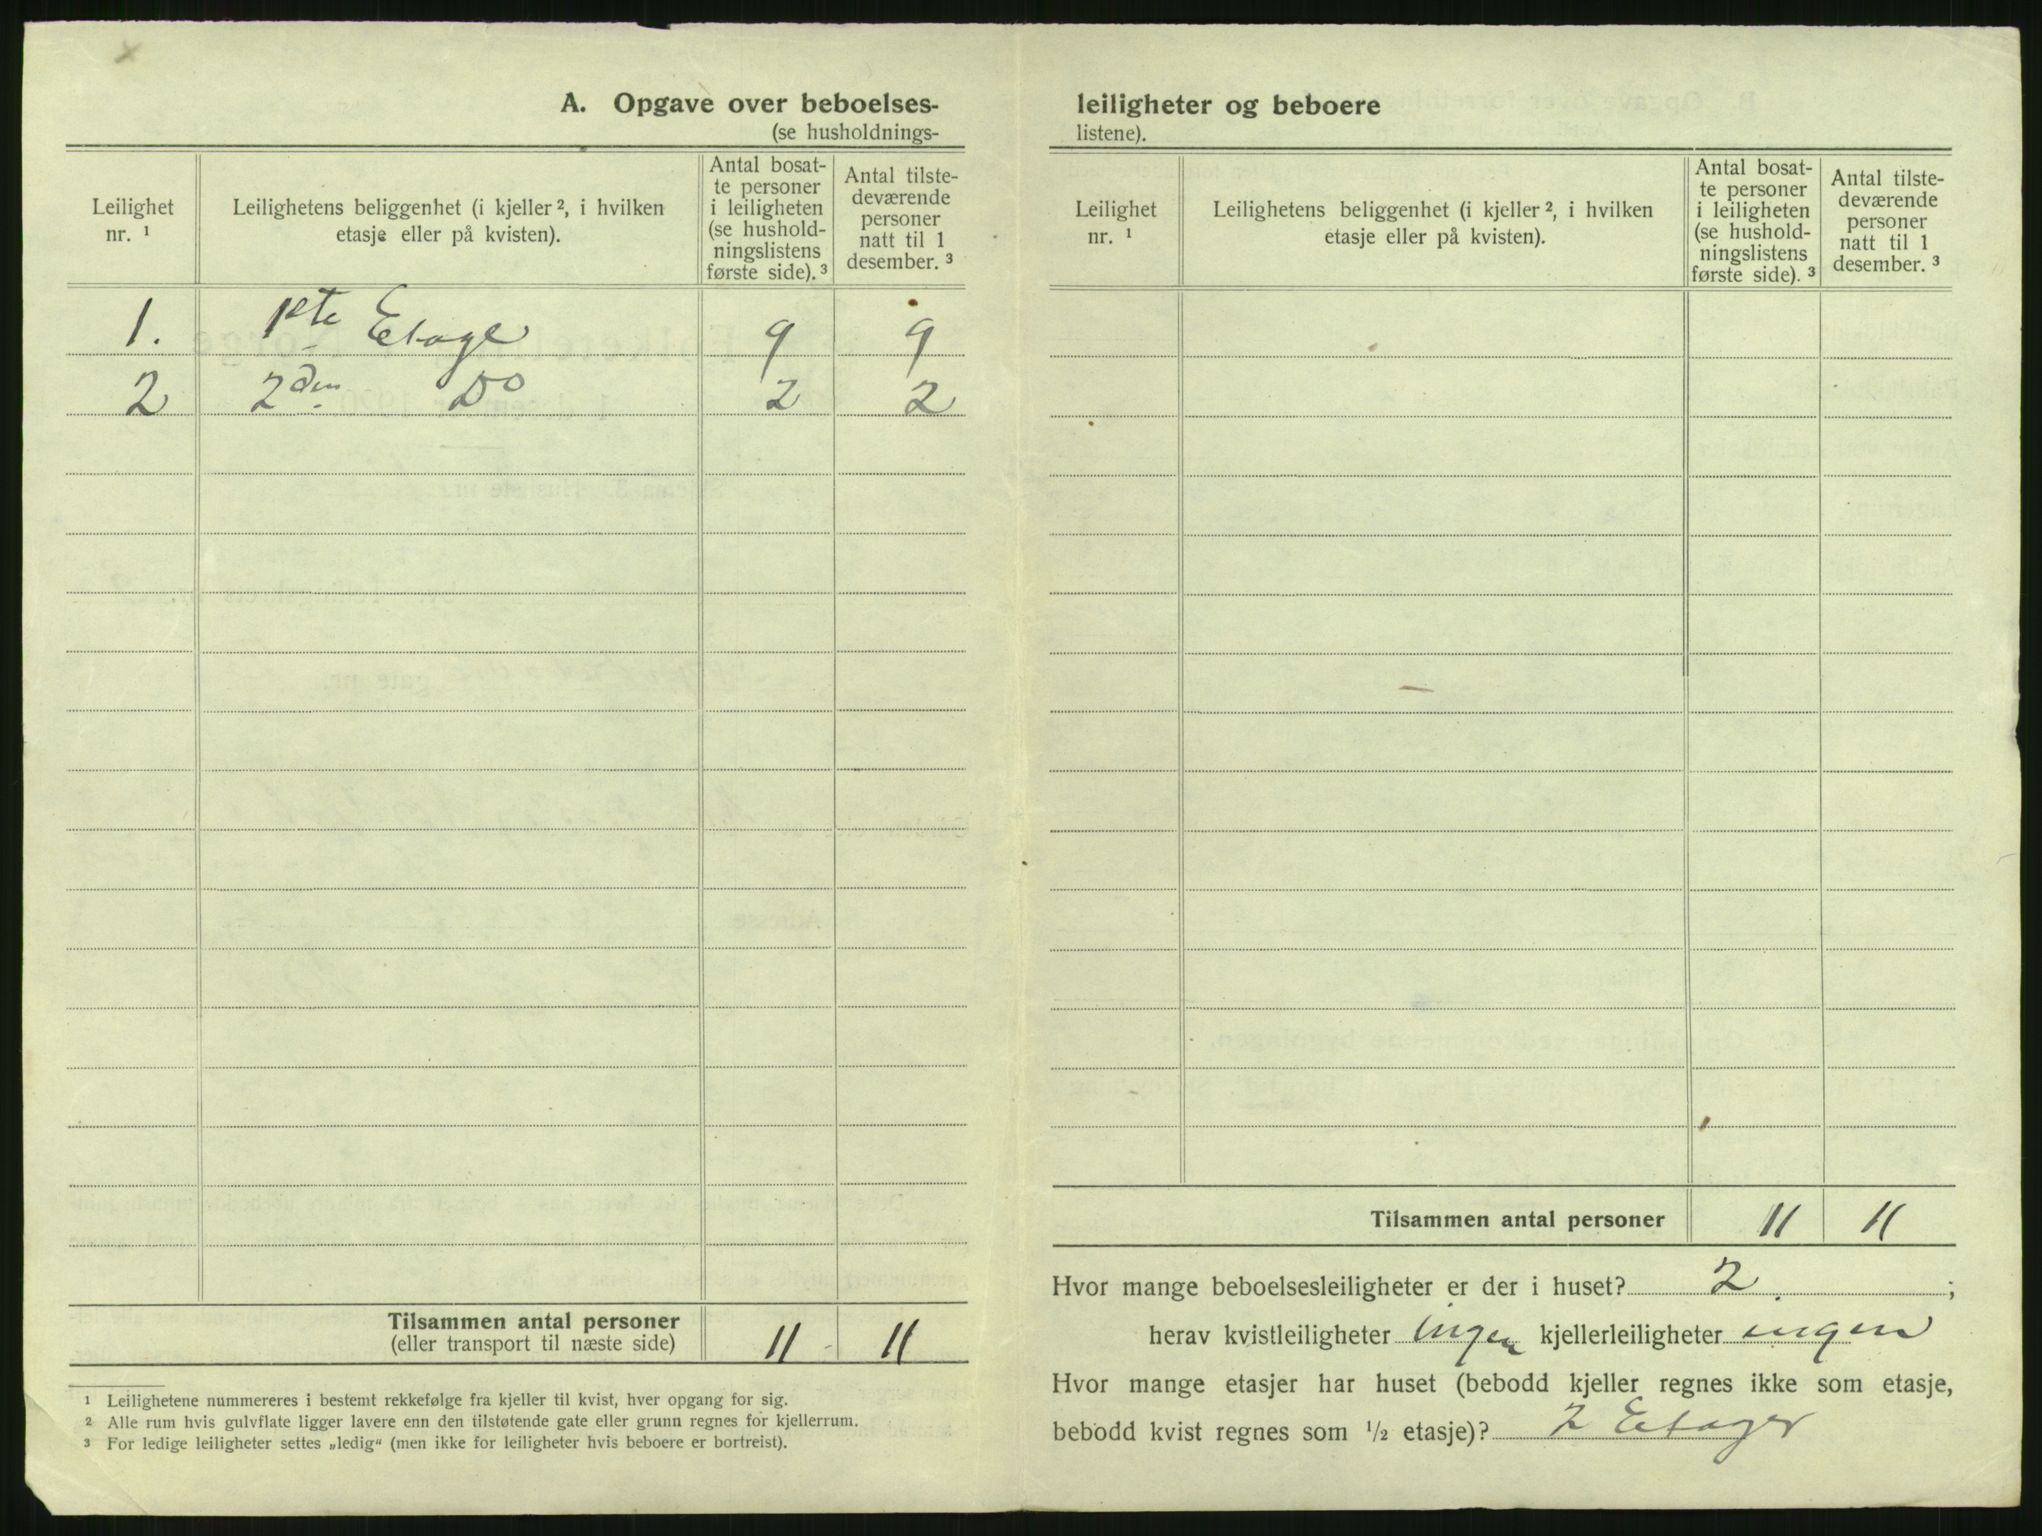 A. Opgave over beboelses-
(se husholdnings-
Leilighet
nr. ¹
Leilighetens beliggenhet (i kjeller ², i hvilken
etasje eller på kvisten).
Antal bosat-
te personer
i leiligheten
(se hushold-
ningslistens
første side). ³
Antal tilste-
deværende
personer
natt til 1
desember. ³
1. 1ste Etage 9 9
2 2den Do 2 2
Tilsammen antal personer 11 11
(eller transport til næste side)
¹ Leilighetene nummereres i bestemt rekkefølge fra kjeller til kvist, hver opgang for sig.
² Alle rum hvis gulvflate ligger lavere enn den tilstøtende gate eller grunn regnes for kjellerrum.
³ For ledige leiligheter settes „ledig“ (men ikke for leiligheter hvis beboere er bortreist).
leiligheter og beboere
listene).
Leilighet
nr. ¹
Leilighetens beliggenhet (i kjeller ², i hvilken
etasje eller på kvisten).
Antal bosat-
te personer
i leiligheten
(se hushold-
ningslistens
første side). ³
Antal tilste-
deværende
personer
natt til 1
desember. ³
Tilsammen antal personer 11 11
Hvor mange beboelsesleiligheter er der i huset? 2. ;
herav kvistleiligheter ingen kjellerleiligheter ingen
Hvor mange etasjer har huset (bebodd kjeller regnes ikke som etasje,
bebodd kvist regnes som ½ etasje)? 2 Etager